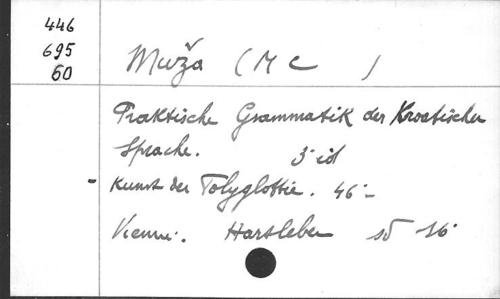 446
695
60
Muža (M C )
Praktische Grammatik der Kroatischen
Sprache. 5 éd
- Kunst der Polyglottie. 46 -
Vienne. Hartleben sd 16